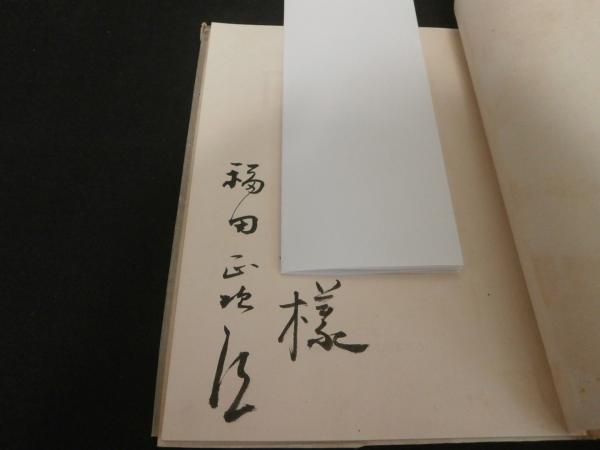 様
福田正次郎